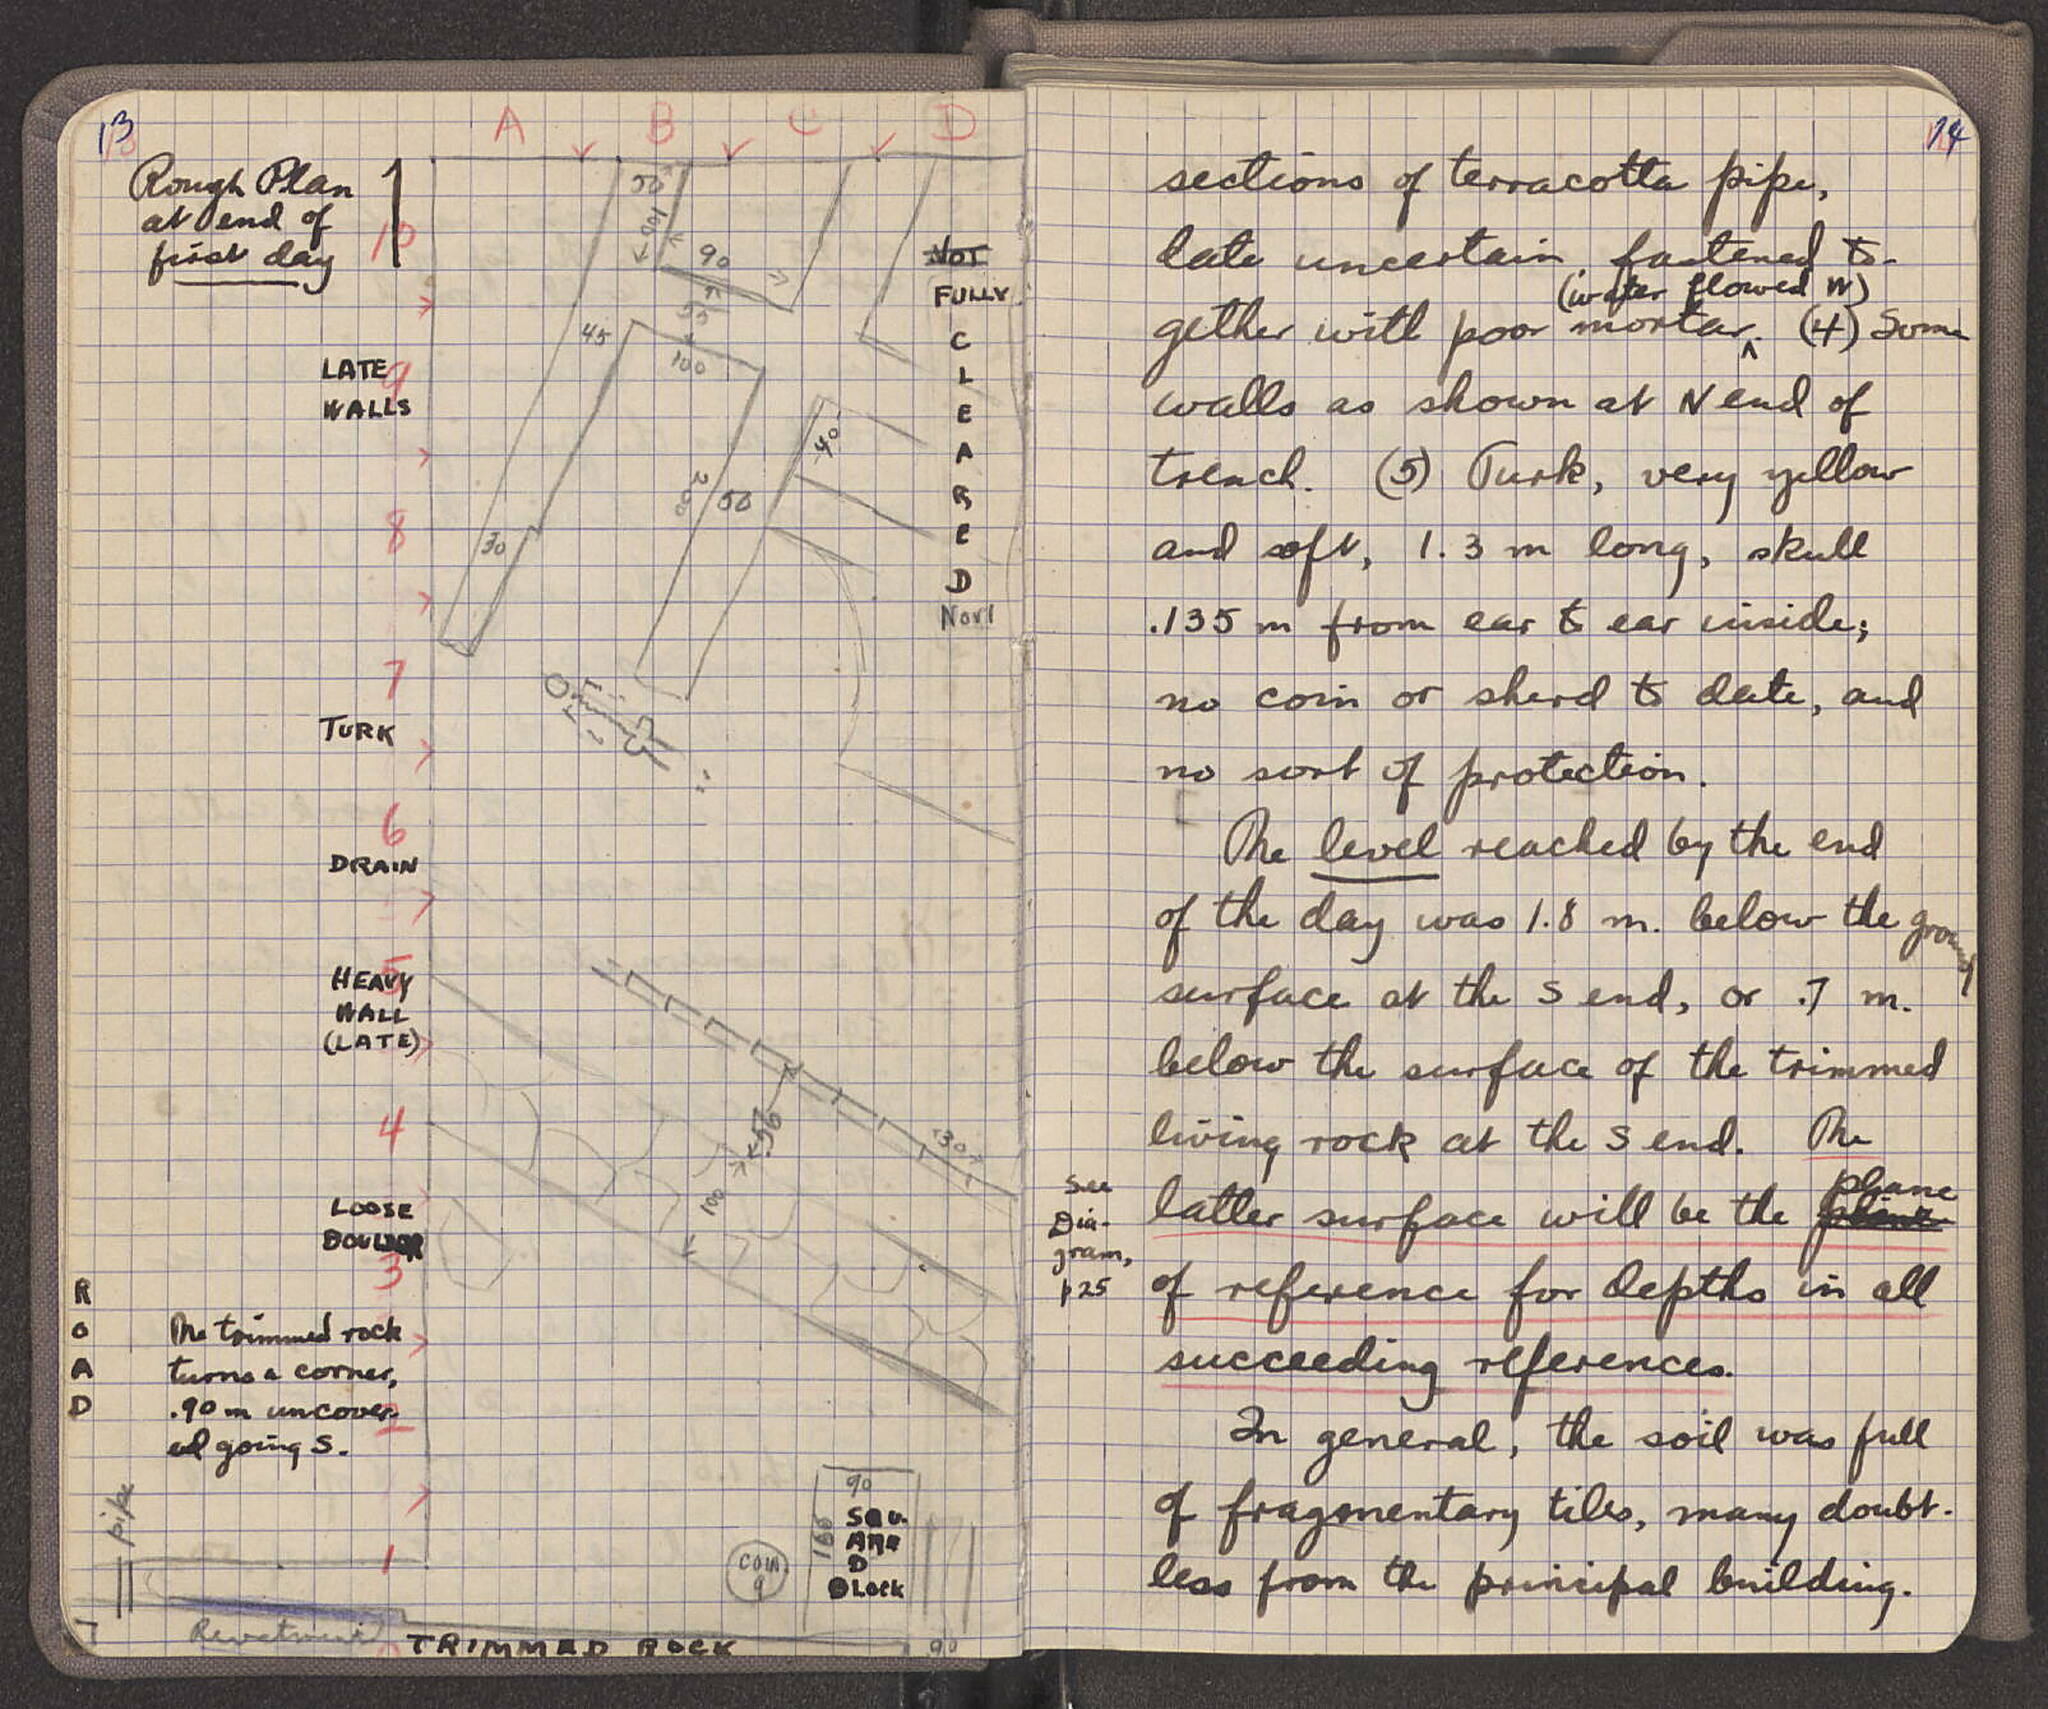 13
A B C D
Rough Plan
at end of
first day
10
50
100
90
55
45
100
NOT
FULLY
C
L
E
A
R
E
D
Nov 1
LATE
WALLS
9
40
200
50
8
30
7
TURK
6
DRAIN
5
HEAVY
WALL
(LATE)
4
50
30
100
LOOSE
BOULDER
3
R
O
A
D
The trimmed rock
turns a corner,
.90 m uncover-
ed going S.
2
pipe
1
90
166
SQU-
ARE
D
BLOCK
COIN
9
Revetment
TRIMMED ROCK
90
14
sections of terracotta pipe,
date uncertain, fastened to-
(water flowed W)
gether with poor mortar. (4) Some
walls as shown at N end of
trench. (5) Turk, very yellow
and soft, 1.3 m long, skull
.135 m from ear to ear inside;
no coin or sherd to date, and
no sort of protection.
The level reached by the end
of the day was 1.8 m. below the ground
surface at the S end, or .7 m.
below the surface of the trimmed
living rock at the S end. The
plane
latter surface will be the
See
Dia-
gram,
p 25
of reference for depths in all
succeeding references.
In general, the soil was full
of fragmentary tiles, many doubt-
less from the principal building.